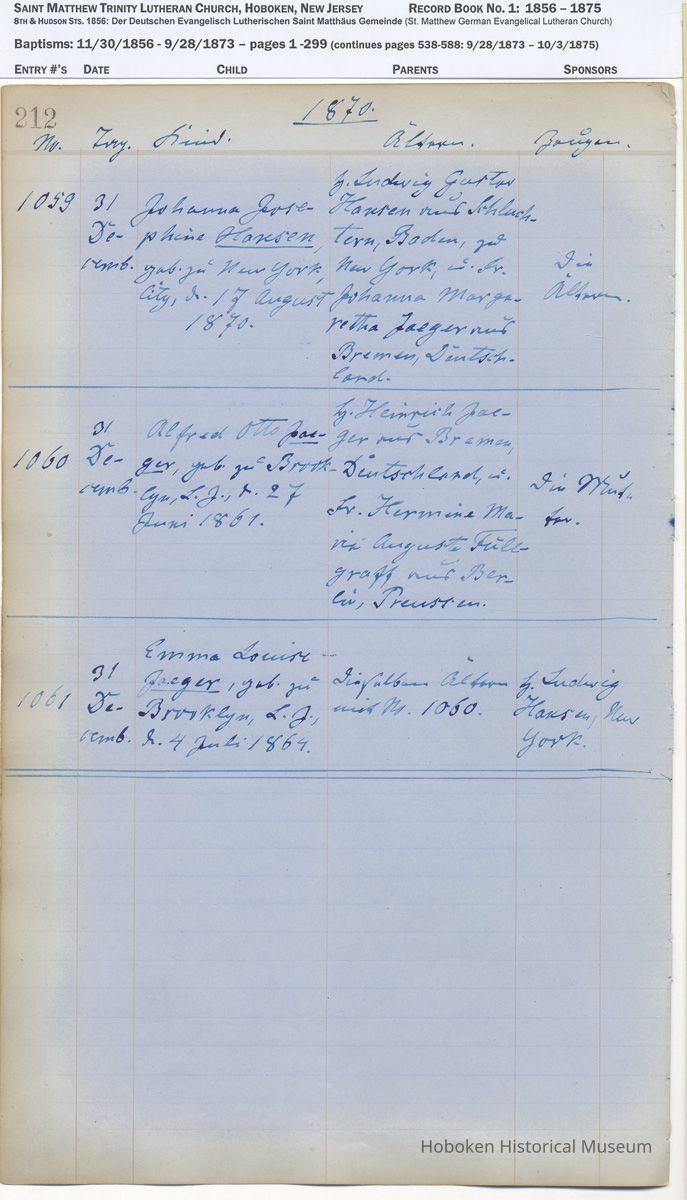 SAINT MATTHEW TRINITY LUTHERAN CHURCH, HOBOKEN, NEW JERSEY RECORD BOOK NO. 1: 1856 – 1875
8TH & HUDSON STS. 1856: Der Deutschen Evangelisch Lutherischen Saint Matthäus Gemeinde (St. Matthew German Evangelical Lutheran Church)
Baptisms: 11/30/1856 - 9/28/1873 – pages 1 -299 (continues pages 538-588: 9/28/1873 – 10/3/1875)
ENTRY #'S DATE CHILD PARENTS SPONSORS
212
1870.
No. Tag. Kind. Ältern. Zeugen.
1059
31
De-
cemb.
Johanna Jose-
phine Hansen,
geb. zu New York,
City, d. 17 August
1870.
H. Ludwig Gustav
Hansen aus Schluch-
tern, Baden, zu
New York, u. Fr.
Johanna Marga-
retha Jaeger aus
Bremen, Deutsch-
land.
Die
Ältern.
1060
31
De-
cemb.
Alfred Otto Jae-
ger, geb. zu Brook-
lyn, L. I., d. 27
Juni 1861.
H. Heinrich Jae-
ger aus Bremen,
Deutschland, u.
Fr. Hermine Ma-
rie Auguste Füll-
graff aus Ber-
lin, Preussen.
Die Mut-
ter.
1061
31
De-
cemb.
Emma Louise
Jaeger, geb. zu
Brooklyn, L. I.,
d. 4 Juli 1864.
Dieselben Ältern
wie No. 1060.
H. Ludwig
Hansen, New
York.
Hoboken Historical Museum